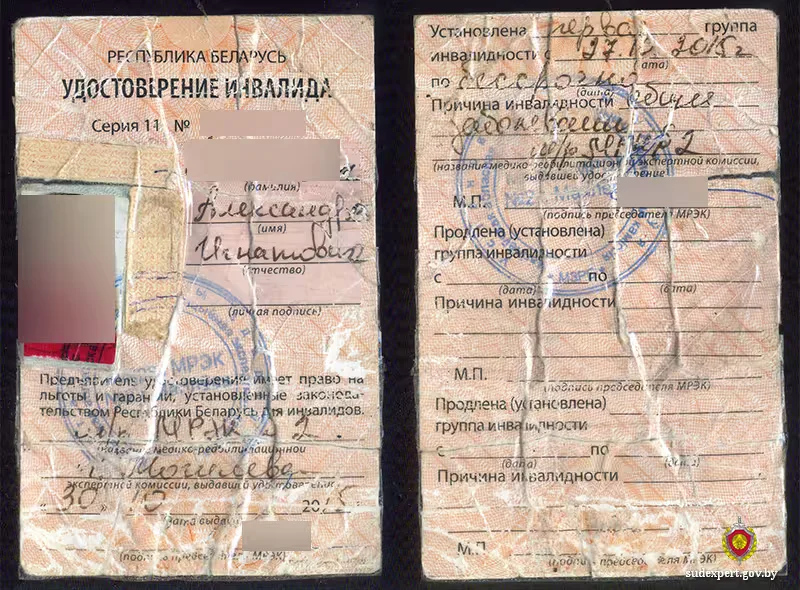 РЕСПУБЛИКА БЕЛАРУСЬ
УДОСТОВЕРЕНИЕ ИНВАЛИДА
Серия 11 №
(фамилия)
Александр
(имя)
Игнатович
(отчество)
(личная подпись)
МРЭК
Предъявитель удостоверения имеет право на
льготы и гарантии, установленные законода-
тельством Республики Беларусь для инвалидов.
МРЭК 2
(название медико-реабилитационной
г. Могилева
экспертной комиссии, выдавшей удостоверение)
"30" 10 2015
(дата выдачи)
(подпись председателя МРЭК)
Установлена первая группа
инвалидности с 27. 2015г
(дата)
по бессрочно
(дата)
Причина инвалидности общее
заболевание
МРЭК 2
(название медико-реабилитационной экспертной комиссии,
выдавшей удостоверение)
М.П.
(подпись председателя МРЭК)
Продлена (установлена)
группа инвалидности
с по
(дата) (дата)
Причина инвалидности
М.П.
(подпись председателя МРЭК)
Продлена (установлена)
группа инвалидности
с по
(дата) (дата)
Причина инвалидности
М.П.
(подпись председателя МРЭК)
sudexpert.gov.by